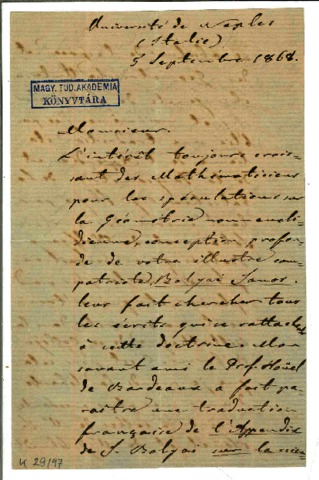 Université de Naples
(Italie)
5 Septembre 1868.
MAGY. TUD. AKADEMIA
KÖNYVTÁRA
Monsieur.
L'intérêt toujours crois-
sant des Mathématiciens
pour les spéculations sur
la Géométrie non-eucli-
dienne, conception profon-
de de votre illustre com-
patriote Bolyai Janos.
leur fait chercher tous
les écrits qui se rattachent
à cette doctrine. Mon
savant ami le Prof. Hoüel
de Bordeaux a fait pa-
raître une traduction
française de l'Appendix
de J. Bolyai sur la scien
K 29/97